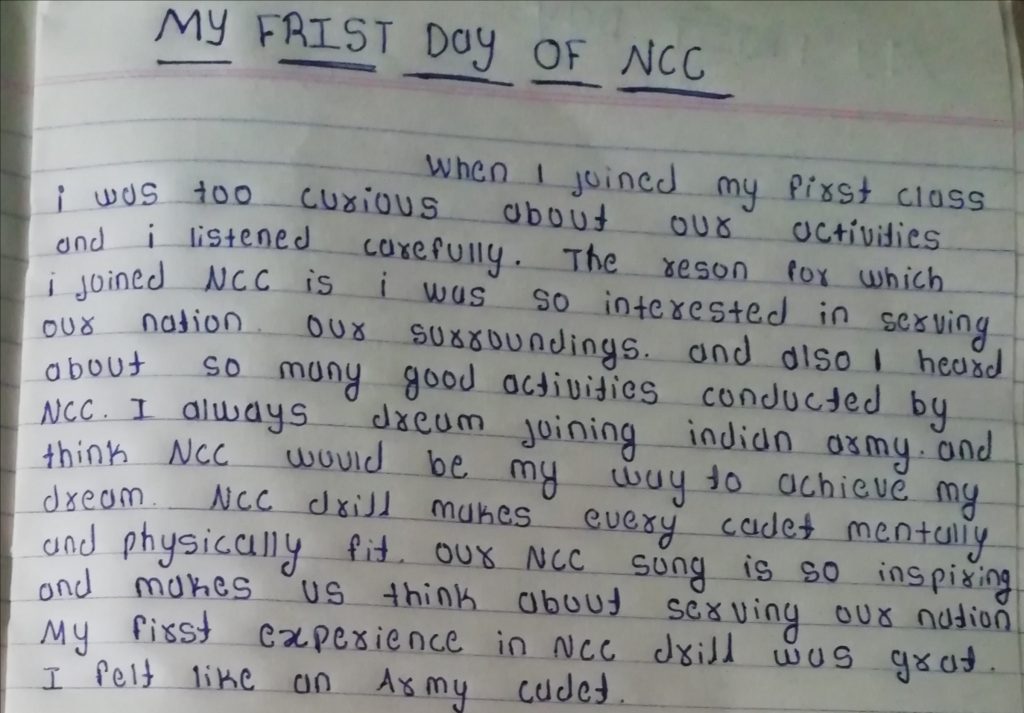 MY FRIST DAY OF NCC
When I joined my first class
i was too curious about our activities
and i listened carefully. The reson for which
i joined NCC is i was so interested in serving
our nation. our surroundings. and also I heard
about so many good activities conducted by
NCC. I always dream joining indian army. and
think NCC would be my way to achieve my
dream. NCC drill makes every cadet mentally
and physically fit. our NCC song is so inspiring
and makes us think about serving our nation
My first experience in NCC drill was grat.
I felt like an Army cadet.